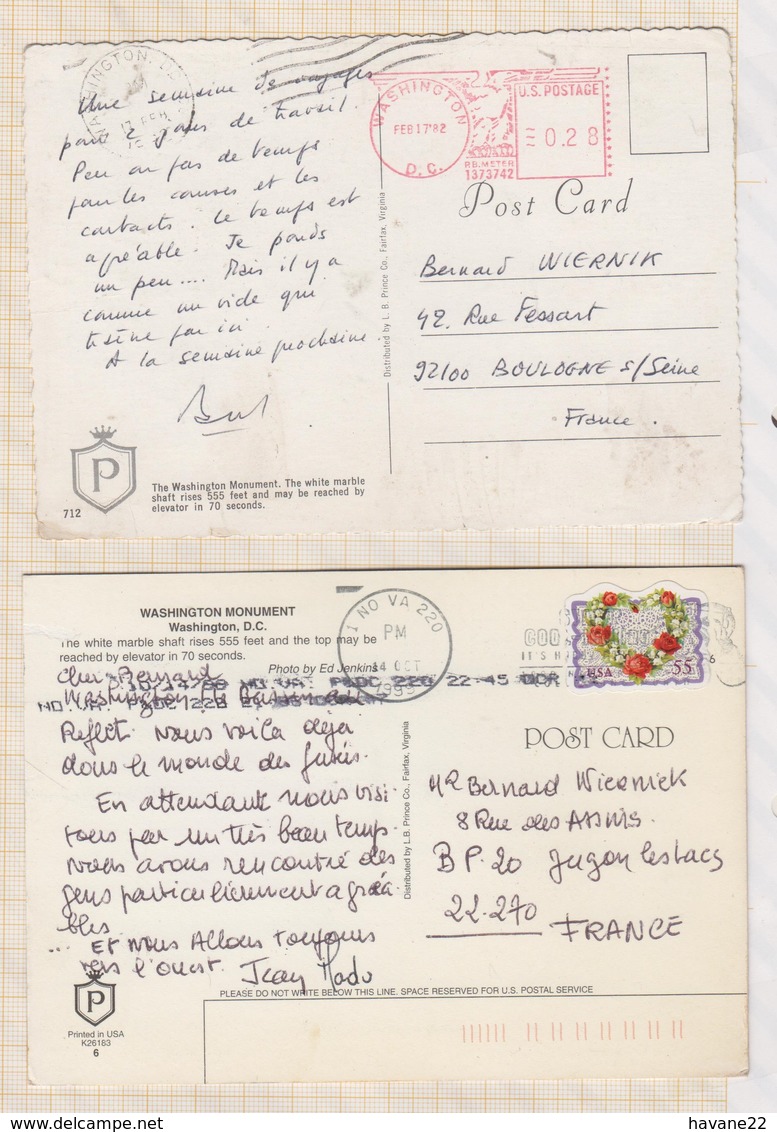 WASHINGTON, D.C.
Une semaine de voyages
pour 2 jours de travail.
Peu ou pas de temps
pour les courses et les
contacts. Le temps est
agréable. Je perds
un peu.... Mais il y a
comme un vide qui
traîne par ici.
A la semaine prochaine.
WASHINGTON
FEB 17 '82
D.C.
U.S. POSTAGE
0.28
P.B. METER
1373742
Post Card
Bernard WIERNIK
42. Rue Fessart
92100 BOULOGNE s/Seine
France.
Distributed by L. B. Prince Co., Fairfax, Virginia
P
712
The Washington Monument. The white marble
shaft rises 555 feet and may be reached by
elevator in 70 seconds.
WASHINGTON MONUMENT
Washington, D.C.
The white marble shaft rises 555 feet and the top may be
reached by elevator in 70 seconds.
Photo by Ed Jenkins
NO VA 220
PM
14 OCT
1999
USA
55
6
cher Bernard
Washington
Reflet. Nous voilà déjà
dans le monde des
En attendant nous visi
tons par un très beau temps.
nous avons rencontré des
gens particulièrement agréa
bles
... Et nous Allons toujours
vers l'ouest. Jean Mado
Distributed by L.B. Prince Co., Fairfax, Virginia
POST CARD
Mr Bernard Wiernick
8 Rue des
BP. 20 Jugon les tacs
22-270
FRANCE
PLEASE DO NOT WRITE BELOW THIS LINE. SPACE RESERVED FOR U.S. POSTAL SERVICE
P
Printed in USA
K26183
6
havane22